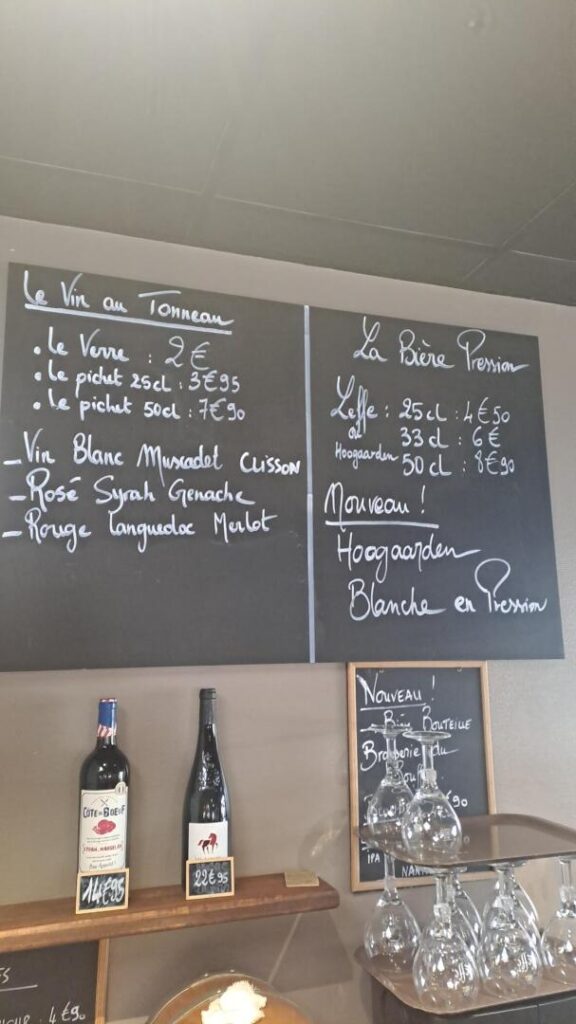 Le Vin au Tonneau
. Le Verre : 2€
. Le pichet 25cl : 3€95
. Le pichet 50cl : 7€90
- Vin Blanc Muscadet CLISSON
- Rosé Syrah Genache
- Rouge Languedoc Merlot
La Bière Pression
Leffe : 25cl : 4€50
ou 33cl : 6€
Hoogaarden 50cl : 8€90
Nouveau !
Hoogaarden
Blanche en Pression
NOUVEAU !
BOUTEILLE
Brasserie du
IPA
CÔTE DE BOEUF
SYRAH
14€95
22€95
4€90